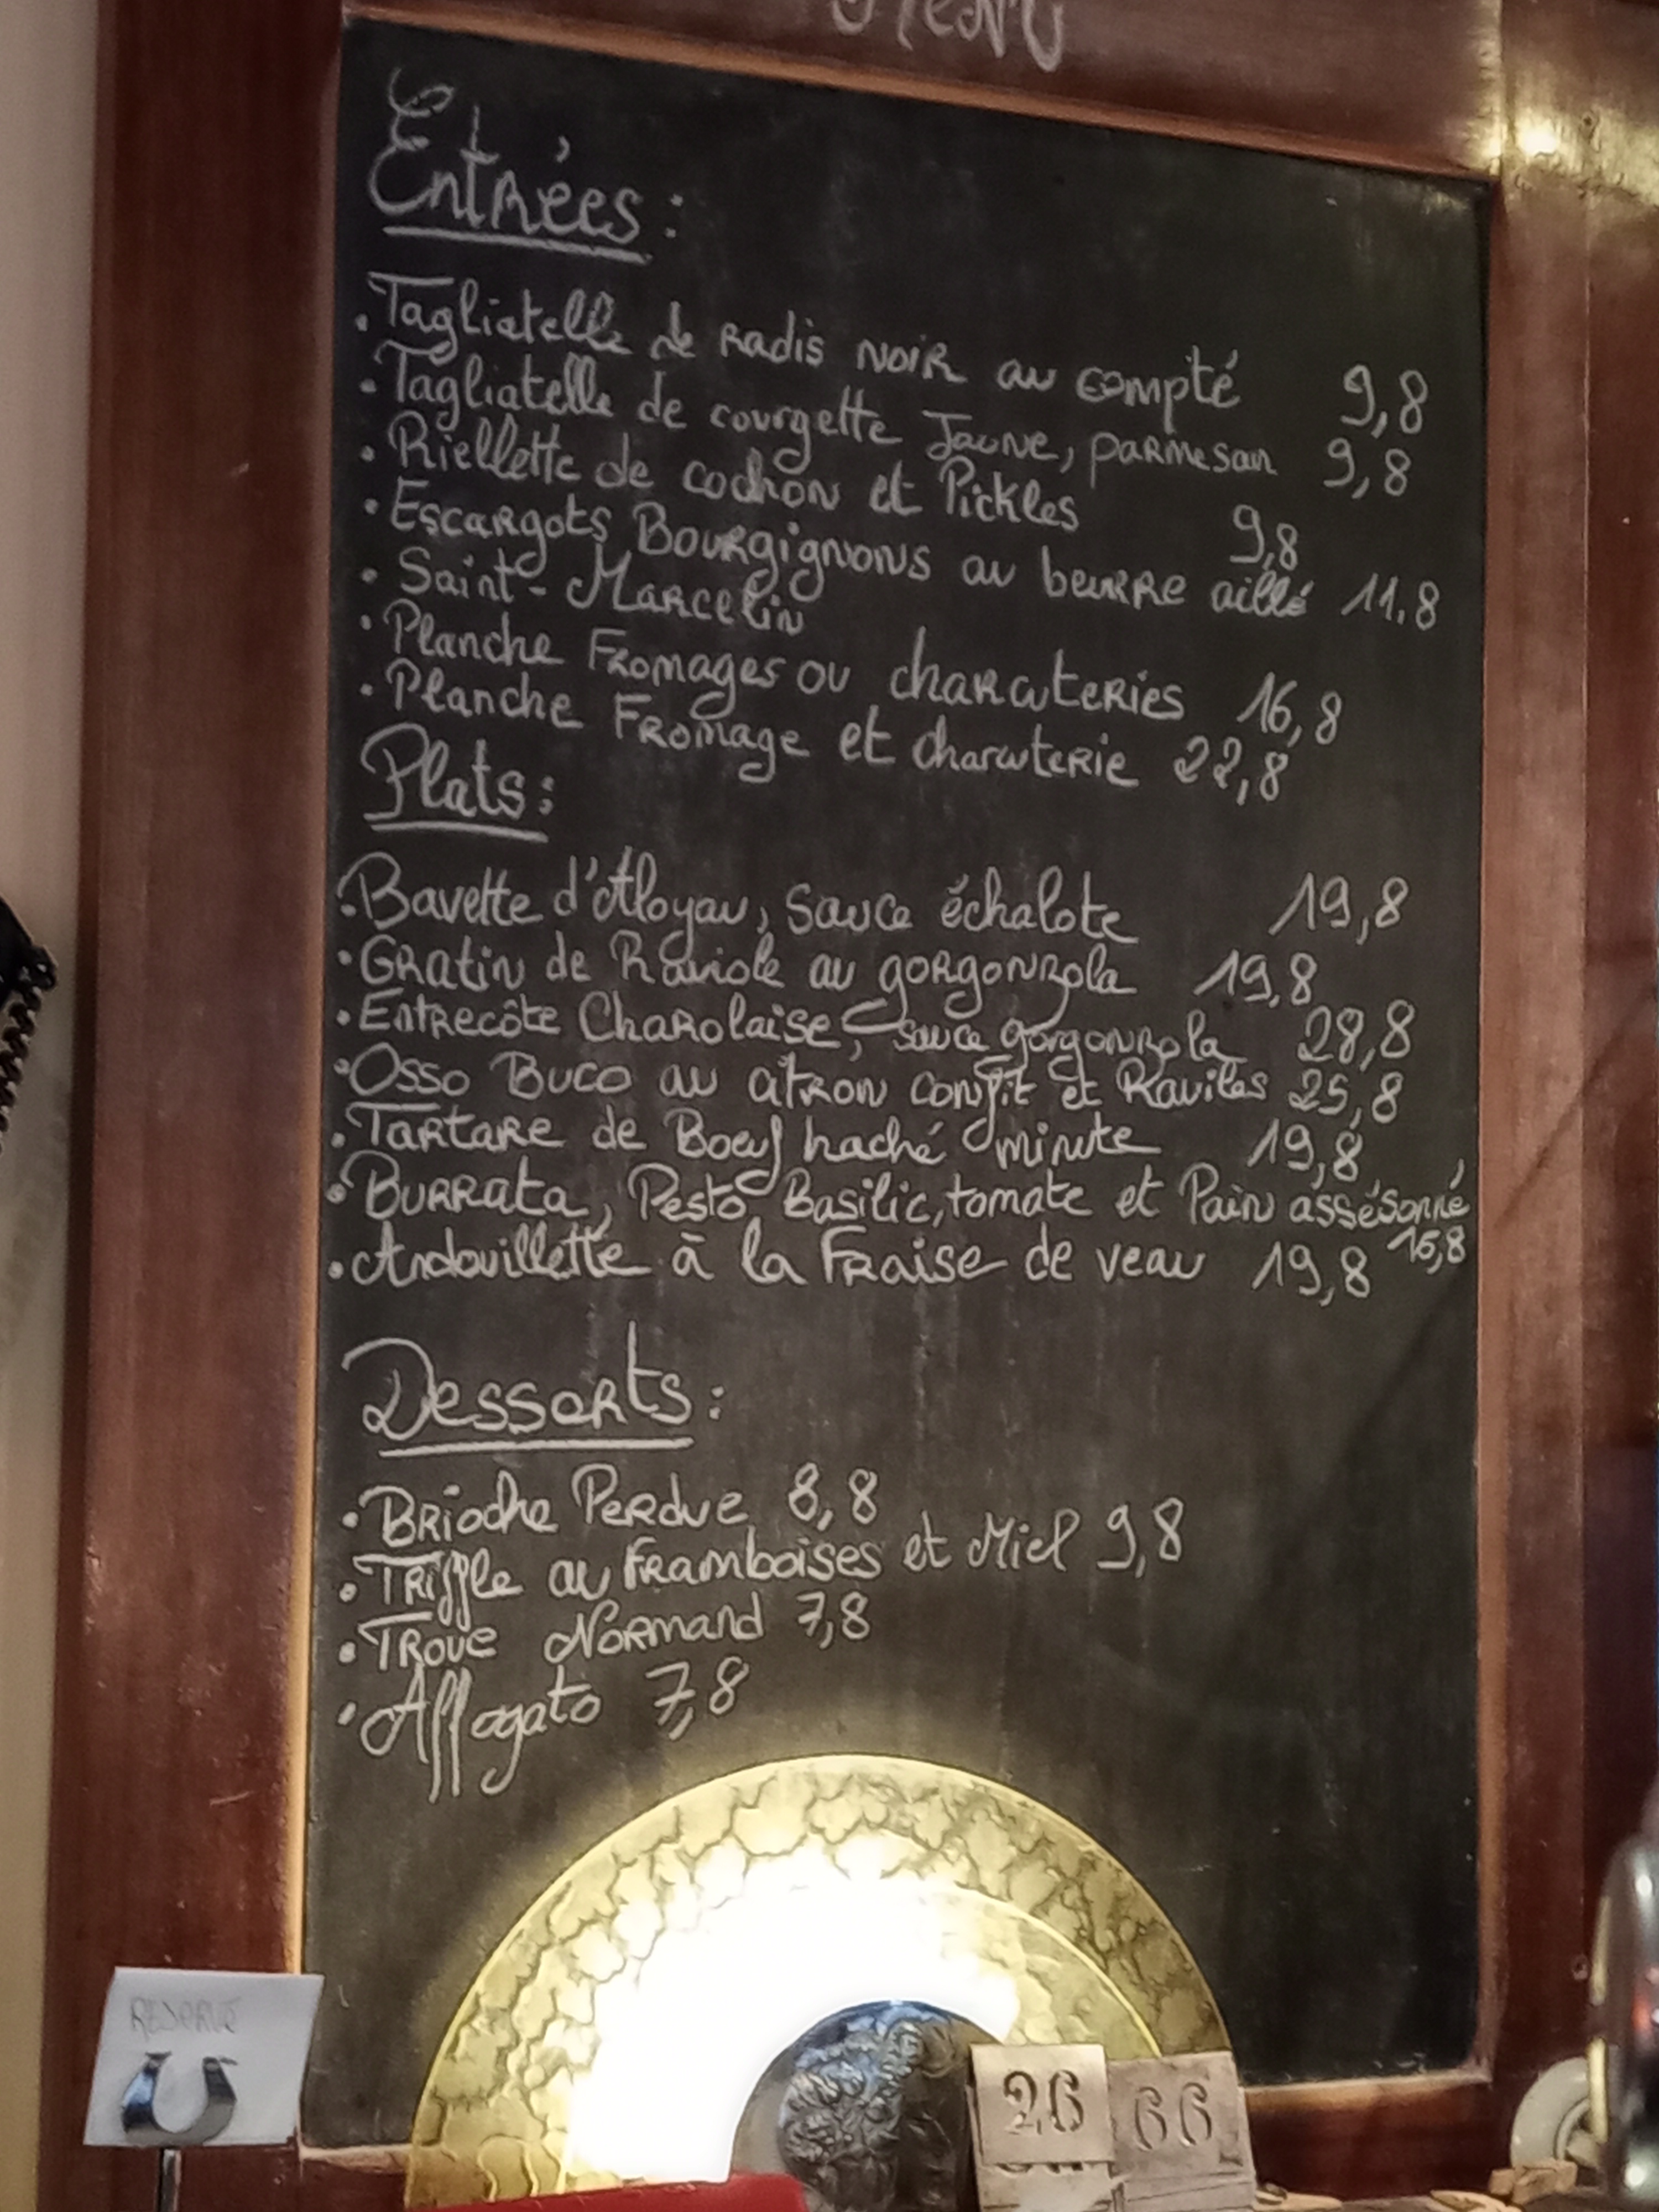 Menu
Entrées :
. Tagliatelle de Radis Noir au compté 9,8
. Tagliatelle de courgette Jaune, parmesan 9,8
. Riellette de cochon et Pickles 9,8
. Escargots Bourgignons au beurre aillé 11,8
. Saint-Marcelin
. Planche Fromages ou charcuteries 16,8
. Planche Fromage et charcuterie 22,8
Plats :
. Bavette d'Aloyau, Sauce échalote 19,8
. Gratin de Raviole au gorgonzola 19,8
. Entrecôte Charolaise, sauce gorgonzola 28,8
. Osso Buco au citron confit et Raviles 25,8
. Tartare de Boeuf haché minute 19,8
. Burrata, Pesto Basilic, tomate et Pain assésonné
15,8
. Andouillette à la Fraise de veau 19,8
Desserts :
. Brioche Perdue 8,8
. Triffle au Framboises et Miel 9,8
. Troue Normand 7,8
. Affogato 7,8
RESERVE
26
66